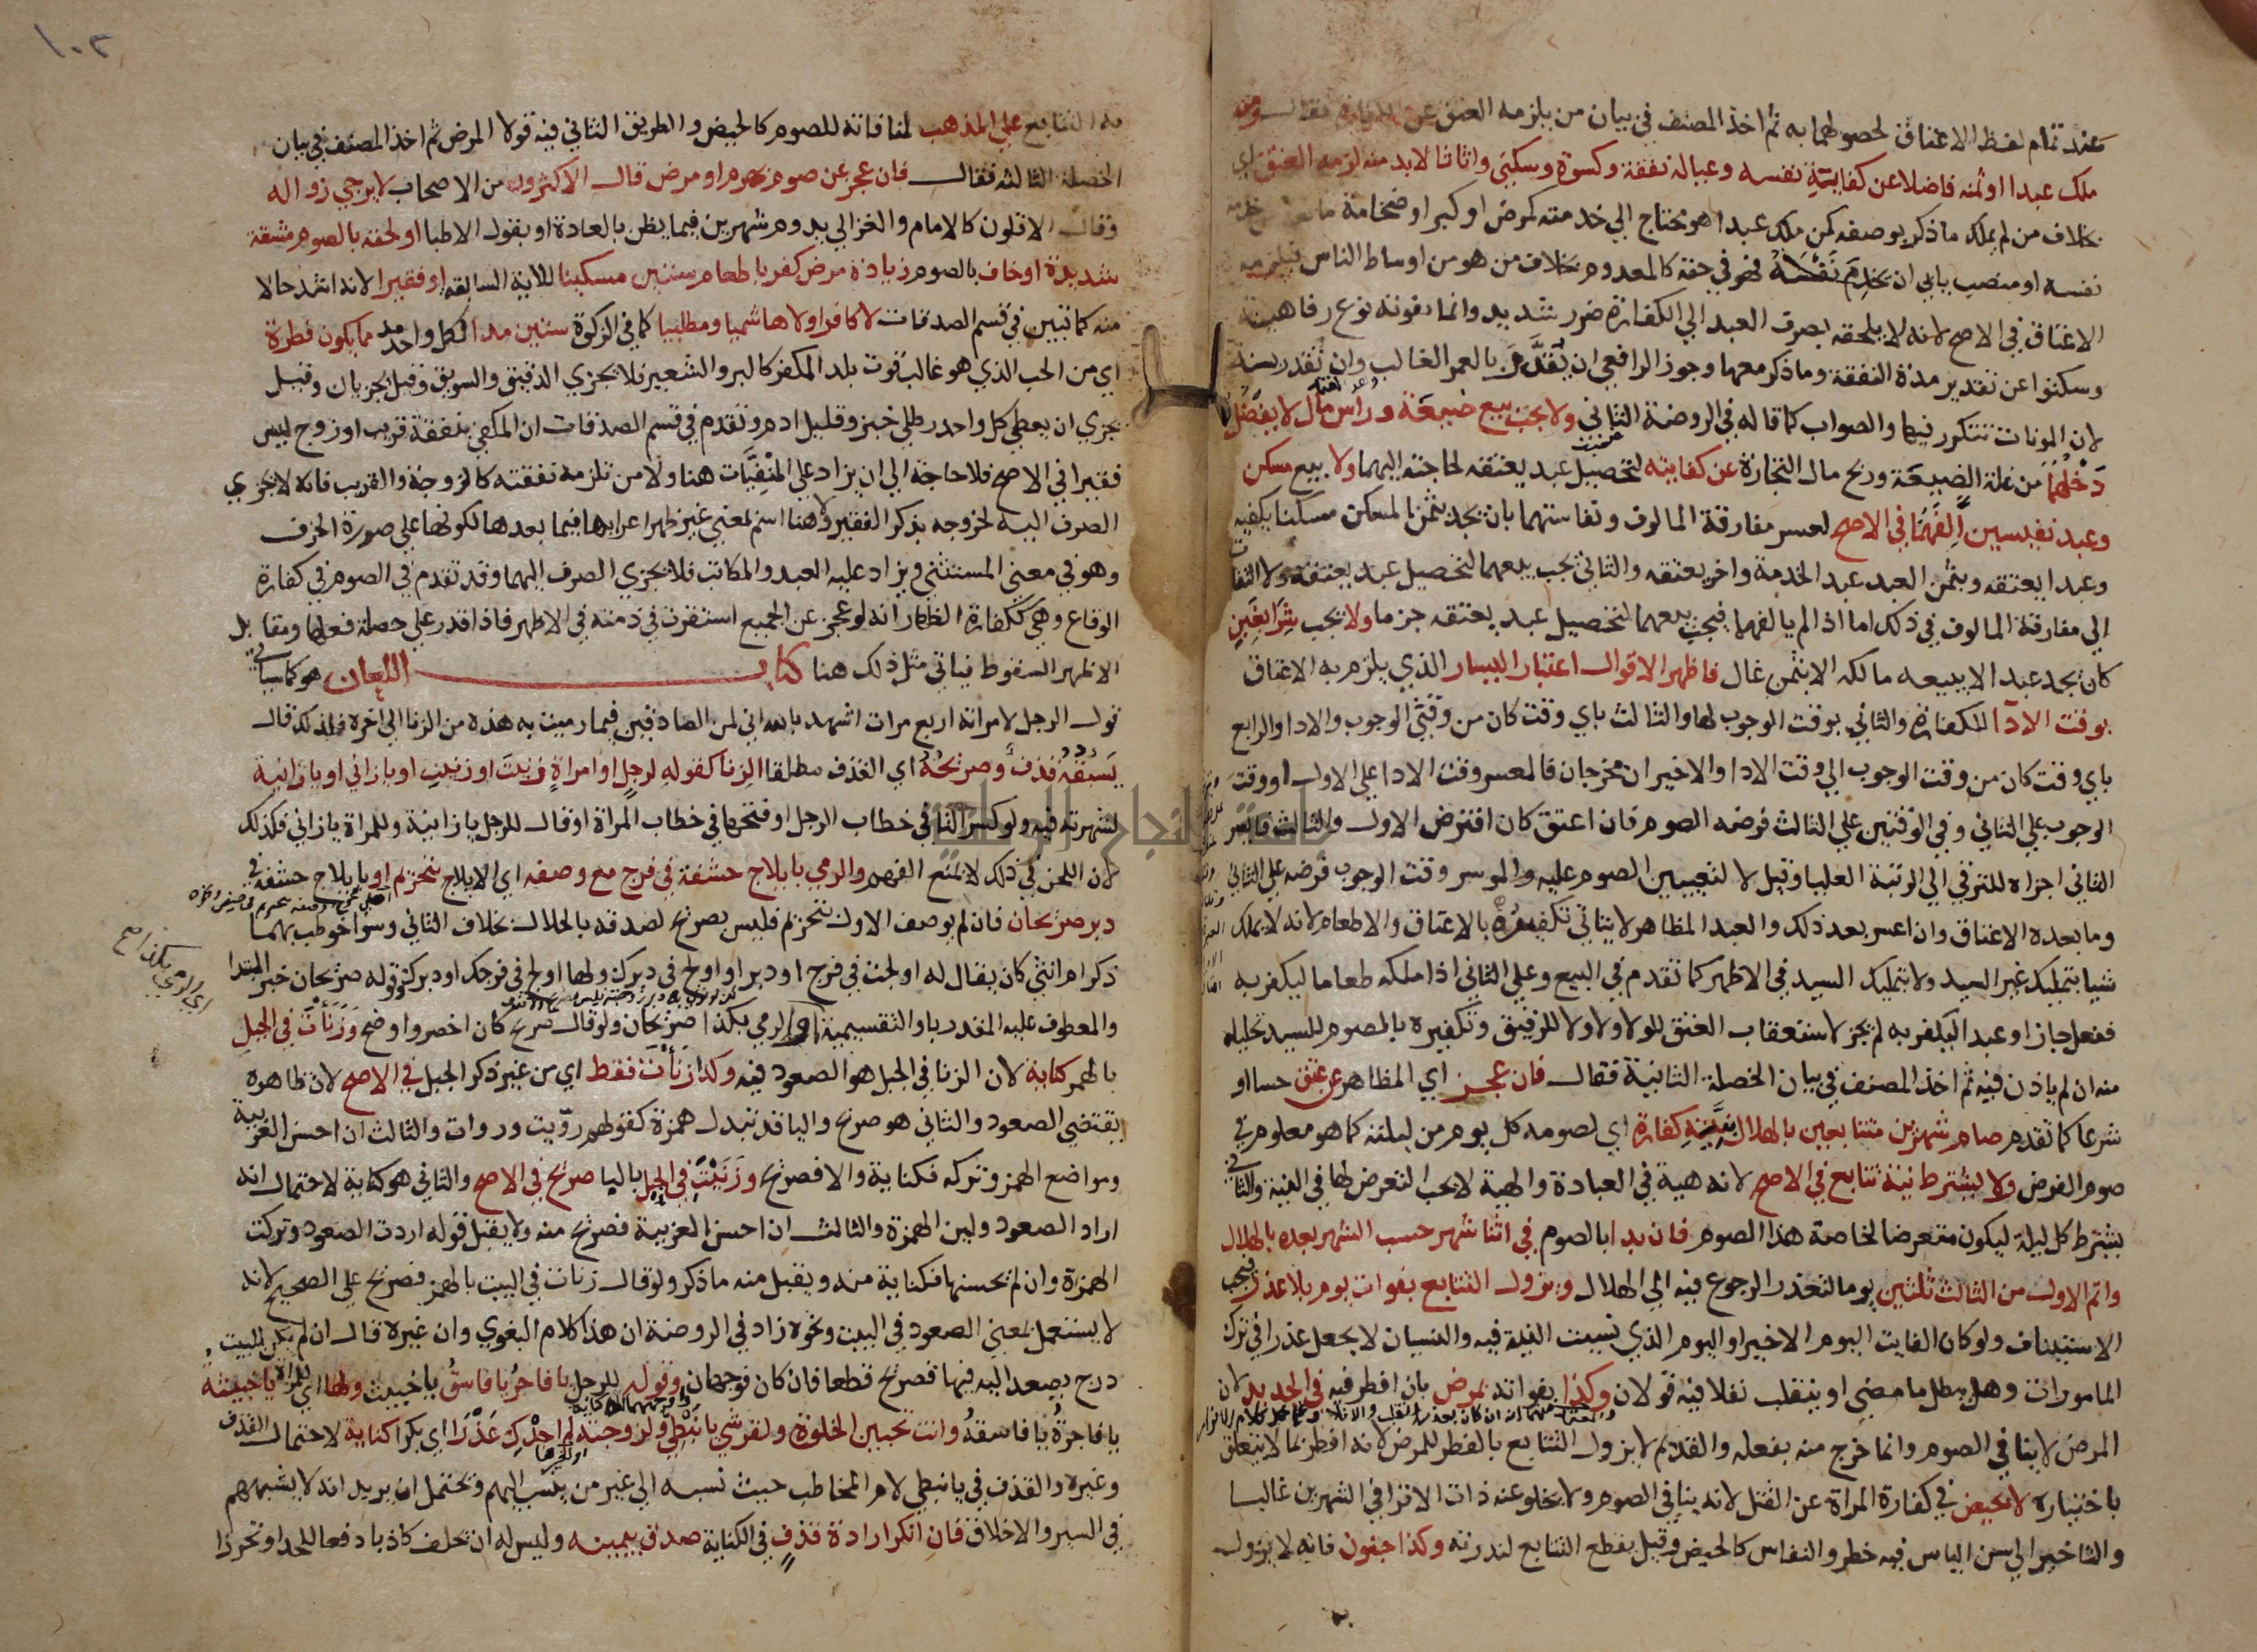 عند تمام لفظ الاعتاق لحصولهما به ثم اخذ المصنف في بيان من يلزمه العتق عن الكفارة فقال ومن
ملك عبدا او ثمنه فاضلا عن كفاية نفسه وعياله نفقة وكسوة وسكنى واثاثا لا بد منه لزمه العتق اي
بخلاف من لم يملك ما ذكر بوصفه كمن ملك عبدا هو محتاج الي خدمته لمرض او كبر او ضخامة مانعة من خدمة
نفسه او منصب يابي ان يخدم نفسه فهو في حقه كالمعدوم بخلاف من هو من اوساط الناس فيلزمه
الاعتاق في الاصح لانه لا يلحقه بصرف العبد الي الكفارة ضرر شديد وانما يفوته نوع رفاهية
وسكتوا عن تقدير مدة النفقة وما ذكر معها وجوز الرافعي ان تقدر بالعمر الغالب وان تقدر بسنة
لان المونات تتكرر فيها والصواب كما قاله في الروضة الثاني ولا يجب بيع ضيعة وراس مال لا يفضل
دخلهما من غلة الضيعة وربح مال التجارة عن كفايته لتحصيل عبد يعتقه لحاجته اليهما ولا بيع مسكن
وعبد نفيسين الفهما في الاصح لعسر مفارقة المالوف ونفاستهما بان يجد بثمن المسكن مسكنا يكفيه
وعبدا يعتقه وبثمن العبد عبد الخدمة واخر يعتقه والثاني يجب بيعهما لتحصيل عبد يعتقه ولا التفات
الي مفارقة المالوف في ذلك اما اذا لم يالفهما فيجب بيعهما لتحصيل عبد يعتقه جزما ولا يجب شرا بغبن
كان يجد عبدا لا يبيعه مالكه الا بثمن غال فاظهر الاقوال اعتبار اليسار الذي يلزم به الاعتاق
بوقت الادا للكفارة والثاني بوقت الوجوب لها والثالث باي وقت كان من وقتي الوجوب والادا والرابع
باي وقت كان من وقت الوجوب الي وقت الادا والاخيران مخرجان فالمعسر وقت الادا علي الاول او وقت
الوجوب علي الثاني وفي الوقتين علي الثالث فرضه الصوم فان اعتق كان افترض الاول والثالث
الثاني اجزاه للترقي الي الرتبة العليا وقيل لا لتعيين الصوم عليه والموسر وقت الوجوب فرضه علي الثاني
وما بعده الاعتاق وان اعسر بعد ذلك والعبد المظاهر لا يتاتي تكفيره بالاعتاق والاطعام لانه لا يملك
شيا بتمليك غير السيد ولا بتمليك السيد في الاظهر كما تقدم في البيع وعلي الثاني اذا ملكه طعاما ليكفر به
ففعل جاز او عبدا ليكفر به لم يجز لاستعقاب العتق للولا ولا ولا للرقيق وتكفيره بالصوم للسيد تحليله
منه ان لم ياذن فيه ثم اخذ المصنف في بيان الخصلة الثانية فقال فان عجز اي المظاهر عن عتق حسا او
شرعا كما تقدم صام شهرين متتابعين بالهلال بنية كفارة اي لصومه كل يوم من ليلته كما هو معلوم في
صوم الفرض ولا يشترط نية تتابع في الاصح لانه هيئة في العبادة والهيئة لا يجب التعرض لها في النية والثاني
يشترط كل ليلة ليكون متعرضا لخاصة هذا الصوم فان بدا بالصوم في اثنا شهر حسب الشهر بعده بالهلال
واتم الاول من الثالث ثلثين يوما لتعذر الرجوع فيه الي الهلال ويزول التتابع بفوات يوم بلا عذر فيجب
الاستيناف ولو كان الفايت اليوم الاخير او اليوم الذي نسيت النية فيه والنسيان لا يجعل عذرا في ترك
المامورات وهل يبطل ما مضي او ينقلب نفلا فيه قولان وكذا بفواته بمرض بان افطر فيه في الجديد لان
المرض لا ينافي الصوم وانما خرج منه بفعله والقديم لا يزول التتابع بالفطر للمرض لانه افطر بما لا يتعلق
باختياره لا بحيض في كفارة المراة عن القتل لانه ينافي الصوم ولا يخلو عنه ذات الاقرا في الشهرين غالبا
والتاخير الي سن الياس فيه خطر والنفاس كالحيض وقيل يقطع التتابع لندرته وكذا جنون فانه لا يزول
١٠٢
به التتابع علي المذهب لمنافاته للصوم كالحيض والطريق الثاني فيه قولا المرض ثم اخذ المصنف في بيان
الخصلة الثالثة فقال فان عجز عن صوم بهرم او مرض قال الاكثرون من الاصحاب لا يرجي زواله
وقال الاقلون كالامام والغزالي يدوم شهرين فيما يظن بالعادة او بقول الاطبا او لحقه بالصوم مشقة
شديدة او خاف بالصوم زيادة مرض كفر باطعام ستين مسكينا للاية السابقة او فقيرا لانه اشد حالا
منه كما تبين في قسم الصدقات لا كافرا ولا هاشميا ومطلبيا كما في الزكوة ستين مدا لكل واحد مد مما يكون فطرة
اي من الحب الذي هو غالب قوت بلد المكفر كالبر والشعير فلا يجزي الدقيق والسويق وقيل يجزيان وقيل
يجزي ان يعطي كل واحد رطلي خبز وقليل ادم وتقدم في قسم الصدقات ان المكفي بنفقة قريب او زوج ليس
فقيرا في الاصح فلا حاجة الي ان يزاد علي المنفيات هنا ولا من تلزمه نفقته كالزوجة والقريب فانه لا يجزي
الصرف اليه لخروجه بذكر الفقير ولا هنا اسم بمعني غير ظهر اعرابها فيما بعدها لكونها علي صورة الحرف
وهو في معني المستثني ويزاد عليه العبد والمكاتب فلا يجزي الصرف اليهما وقد تقدم في الصوم في كفارة
الوقاع وهي ككفارة الظهار انه لو عجز عن الجميع استقرت في ذمته في الاظهر فاذا قدر علي خصلة فعلها ومقابل
الاظهر السقوط فياتي مثل ذلك هنا كتاب اللعان هو كما سياتي
قول الرجل لامراته اربع مرات اشهد بالله اني لمن الصادقين فيما رميت به هذه من الزنا الي اخره فلذلك قال
يسبقه قذف وصريحه اي القذف مطلقا الزنا كقوله لرجل او امراة زنيت او زنيت او يا زاني او يا زانية
لشهرته فيه ولو كسر التا في خطاب الرجل او فتحها في خطاب المراة او قال للرجل يا زانية وللمراة يا زاني فكذلك
لان اللحن في ذلك لا يمنع الفهم والرمي بايلاج حشفة في فرج مع وصفه اي الايلاج بتحريم او بايلاج حشفة في
دبر صريحان فان لم يوصف الاول بتحريم فليس بصريح لصدقه بالحلال بخلاف الثاني وسوا خوطب بهما
ذكر ام انثي كان يقال له اولجت في فرج او دبر او اولج في دبرك ولها اولج في فرجك او دبرك وقوله صريحان خبر المبتدا
والمعطوف عليه المقدر باو التقسيمية اي الرمي بكذا او بكذا صريحان ولو قال صريح كان اخصر واوضح وزنات في الجبل
بالهمز كناية لان الزنا في الجبل هو الصعود فيه وكذا زنات فقط اي من غير ذكر الجبل في الاصح لان ظاهره
يقتضي الصعود والثاني هو صريح واليا قد تبدل همزة كقولهم رويت وروات والثالث ان احسن العربية
ومواضع الهمز وتركه فكناية والا فصريح وزنيت في الجبل باليا صريح في الاصح والثاني هو كناية لاحتمال انه
اراد الصعود ولين الهمزة والثالث ان احسن العربية فصريح منه ولا يقبل قوله اردت الصعود وتركت
الهمزة وان لم يحسنها فكناية منه ويقبل منه ما ذكر ولو قال زنات في البيت بالهمز فصريح علي الصحيح لانه
لا يستعمل بمعني الصعود في البيت ونحوه زاد في الروضة ان هذا كلام البغوي وان غيره قال ان لم يكن للبيت
درج يصعد اليه فيها فصريح قطعا فان كان فوجهان وقوله للرجل يا فاجر يا فاسق يا خبيث ولها اي للمراة يا خبيثة
يا فاجرة يا فاسقة وانت تحبين الخلوة ولقرشي يا نبطي ولزوجته لم اجدك عذرا اي بكرا كناية لاحتمال القذف
وغيره والقذف في يا نبطي لام المخاطب حيث نسبه الي غير من ينسب اليهم ويحتمل ان يريد انه لا يشبههم
في السير والاخلاق فان انكر ارادة قذف في الكناية صدق بيمينه وليس له ان يحلف كاذبا دفعا للحد او تحرزا